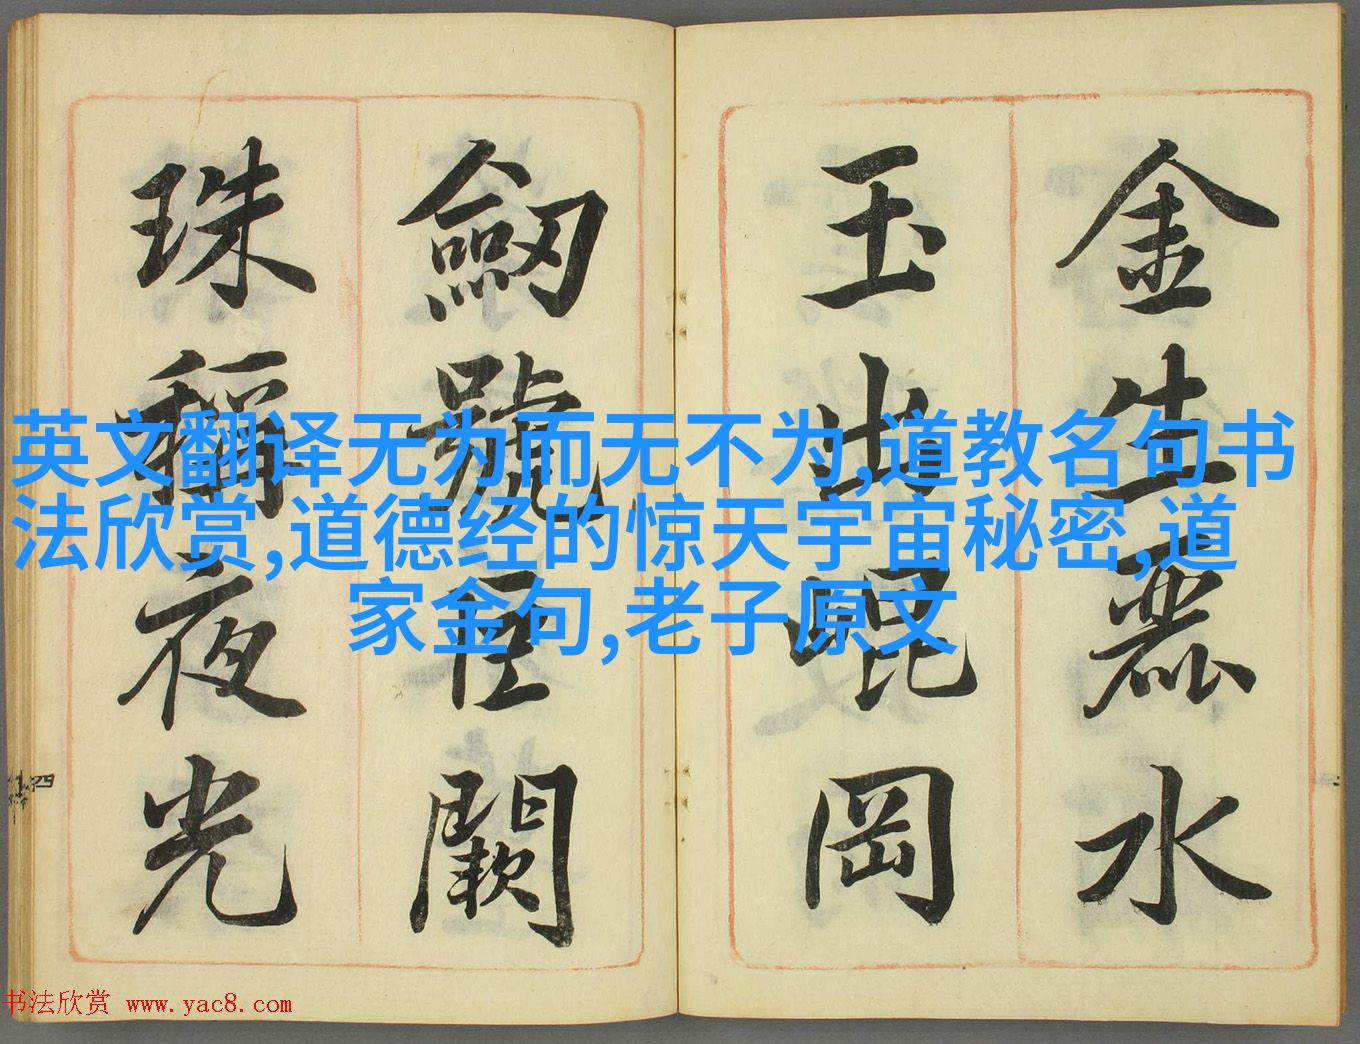 金生麗水
玉出崐岡
劒號巨闕
珠稱夜光
英文翻译无为而无不为,道教名句书
法欣赏,道德经的惊天宇宙秘密,道
家金句,老子原文
书法欣赏 www.yac8.com